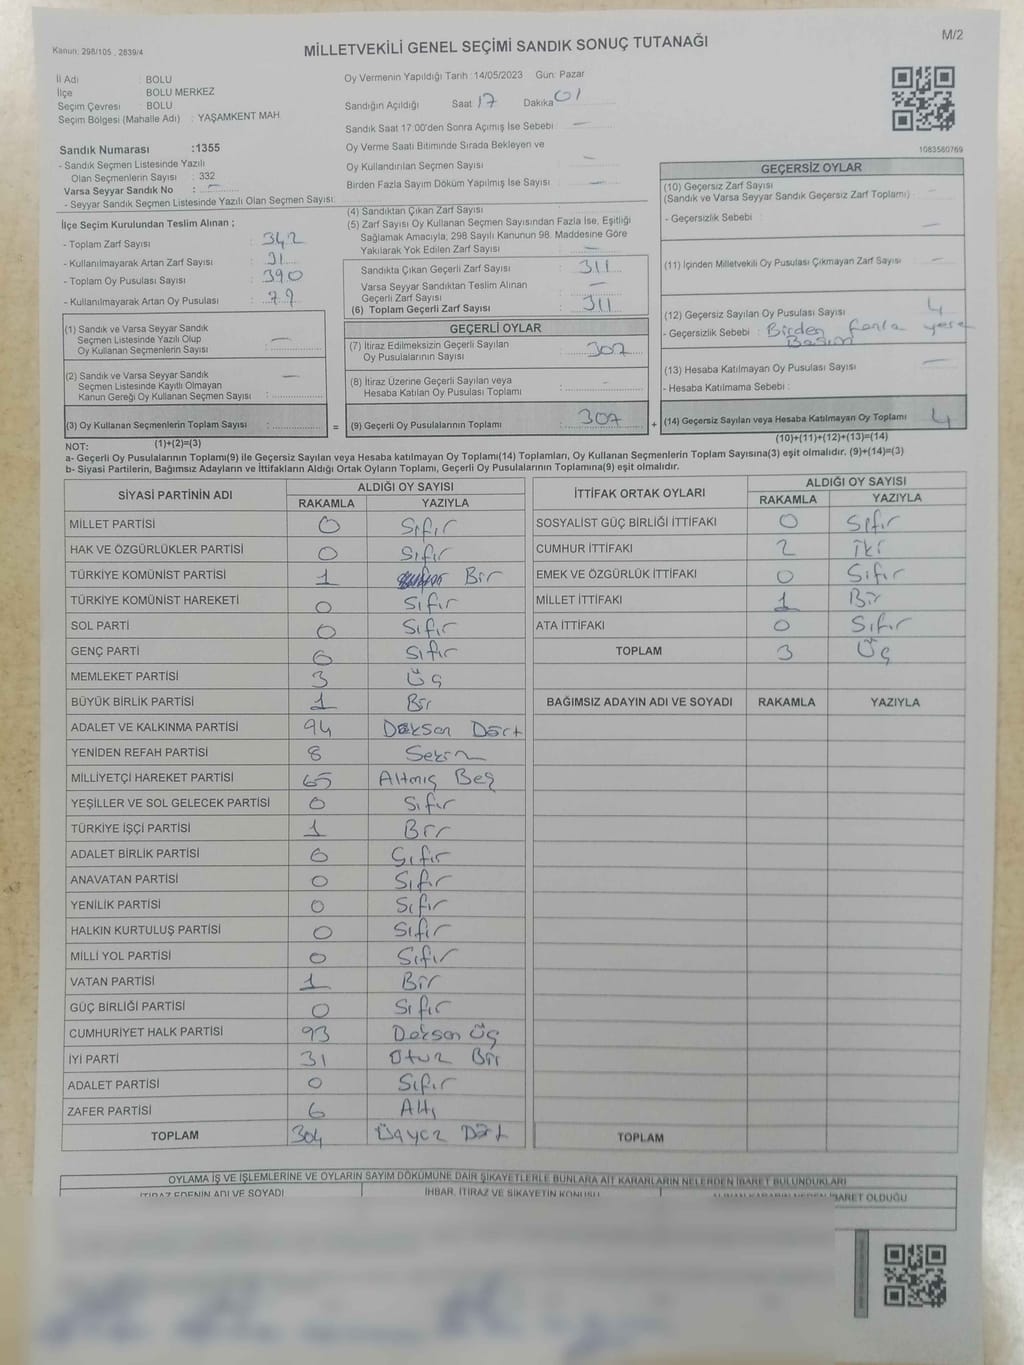 M/2
Kanun: 298/105 , 2839/4
MİLLETVEKİLİ GENEL SEÇİMİ SANDIK SONUÇ TUTANAĞI
İl Adı : BOLU
İlçe : BOLU MERKEZ
Seçim Çevresi : BOLU
Seçim Bölgesi (Mahalle Adı) : YAŞAMKENT MAH
Oy Vermenin Yapıldığı Tarih :14/05/2023 Gün: Pazar
Sandığın Açıldığı Saat 17 Dakika 01
Sandık Saat 17:00'den Sonra Açımış İse Sebebi : —
Oy Verme Saati Bitiminde Sırada Bekleyen ve
Oy Kullandırılan Seçmen Sayısı : —
Birden Fazla Sayım Döküm Yapılmış İse Sayısı : —
1083580769
Sandık Numarası :1355
- Sandık Seçmen Listesinde Yazılı
Olan Seçmenlerin Sayısı : 332
Varsa Seyyar Sandık No : —
- Seyyar Sandık Seçmen Listesinde Yazılı Olan Seçmen Sayısı:
İlçe Seçim Kurulundan Teslim Alınan ;
- Toplam Zarf Sayısı : 342
- Kullanılmayarak Artan Zarf Sayısı : 31
- Toplam Oy Pusulası Sayısı : 390
- Kullanılmayarak Artan Oy Pusulası : 79
(1) Sandık ve Varsa Seyyar Sandık
Seçmen Listesinde Yazılı Olup
Oy Kullanan Seçmenlerin Sayısı : —
(2) Sandık ve Varsa Seyyar Sandık
Seçmen Listesinde Kayıtlı Olmayan
Kanun Gereği Oy Kullanan Seçmen Sayısı : —
(3) Oy Kullanan Seçmenlerin Toplam Sayısı :
(4) Sandıktan Çıkan Zarf Sayısı :
(5) Zarf Sayısı Oy Kullanan Seçmen Sayısından Fazla İse, Eşitliği
Sağlamak Amacıyla, 298 Sayılı Kanunun 98. Maddesine Göre
Yakılarak Yok Edilen Zarf Sayısı : —
Sandıkta Çıkan Geçerli Zarf Sayısı : 311
Varsa Seyyar Sandıktan Teslim Alınan
Geçerli Zarf Sayısı : —
(6) Toplam Geçerli Zarf Sayısı : 311
GEÇERLİ OYLAR
(7) İtiraz Edilmeksizin Geçerli Sayılan
Oy Pusulalarının Sayısı : 307
(8) İtiraz Üzerine Geçerli Sayılan veya
Hesaba Katılan Oy Pusulası Toplamı : —
= (9) Geçerli Oy Pusulalarının Toplamı : 307
GEÇERSİZ OYLAR
(10) Geçersiz Zarf Sayısı
(Sandık ve Varsa Seyyar Sandık Geçersiz Zarf Toplamı) : —
- Geçersizlik Sebebi : —
(11) İçinden Milletvekili Oy Pusulası Çıkmayan Zarf Sayısı : —
(12) Geçersiz Sayılan Oy Pusulası Sayısı : 4
- Geçersizlik Sebebi : Birden fazla yere
Basım
(13) Hesaba Katılmayan Oy Pusulası Sayısı : —
- Hesaba Katılmama Sebebi :
+ (14) Geçersiz Sayılan veya Hesaba Katılmayan Oy Toplamı : 4
(10)+(11)+(12)+(13)=(14)
NOT: (1)+(2)=(3)
a- Geçerli Oy Pusulalarının Toplamı(9) ile Geçersiz Sayılan veya Hesaba katılmayan Oy Toplamı(14) Toplamları, Oy Kullanan Seçmenlerin Toplam Sayısına(3) eşit olmalıdır. (9)+(14)=(3)
b- Siyasi Partilerin, Bağımsız Adayların ve İttifakların Aldığı Ortak Oyların Toplamı, Geçerli Oy Pusulalarının Toplamına(9) eşit olmalıdır.
SİYASİ PARTİNİN ADI ALDIĞI OY SAYISI
RAKAMLA YAZIYLA
MİLLET PARTİSİ 0 Sıfır
HAK VE ÖZGÜRLÜKLER PARTİSİ 0 Sıfır
TÜRKİYE KOMÜNİST PARTİSİ 1 Bir
TÜRKİYE KOMÜNİST HAREKETİ 0 Sıfır
SOL PARTİ 0 Sıfır
GENÇ PARTİ 0 Sıfır
MEMLEKET PARTİSİ 3 Üç
BÜYÜK BİRLİK PARTİSİ 1 Bir
ADALET VE KALKINMA PARTİSİ 94 Doksan Dört
YENİDEN REFAH PARTİSİ 8 Sekiz
MİLLİYETÇİ HAREKET PARTİSİ 65 Altmış Beş
YEŞİLLER VE SOL GELECEK PARTİSİ 0 Sıfır
TÜRKİYE İŞÇİ PARTİSİ 1 Bir
ADALET BİRLİK PARTİSİ 0 Sıfır
ANAVATAN PARTİSİ 0 Sıfır
YENİLİK PARTİSİ 0 Sıfır
HALKIN KURTULUŞ PARTİSİ 0 Sıfır
MİLLİ YOL PARTİSİ 0 Sıfır
VATAN PARTİSİ 1 Bir
GÜÇ BİRLİĞİ PARTİSİ 0 Sıfır
CUMHURİYET HALK PARTİSİ 93 Doksan Üç
İYİ PARTİ 31 Otuz Bir
ADALET PARTİSİ 0 Sıfır
ZAFER PARTİSİ 6 Altı
TOPLAM 304 Üçyüz Dört
İTTİFAK ORTAK OYLARI ALDIĞI OY SAYISI
RAKAMLA YAZIYLA
SOSYALİST GÜÇ BİRLİĞİ İTTİFAKI 0 Sıfır
CUMHUR İTTİFAKI 2 İki
EMEK VE ÖZGÜRLÜK İTTİFAKI 0 Sıfır
MİLLET İTTİFAKI 1 Bir
ATA İTTİFAKI 0 Sıfır
TOPLAM 3 Üç
BAĞIMSIZ ADAYIN ADI VE SOYADI RAKAMLA YAZIYLA
TOPLAM
OYLAMA İŞ VE İŞLEMLERİNE VE OYLARIN SAYIM DÖKÜMÜNE DAİR ŞİKAYETLERLE BUNLARA AİT KARARLARIN NELERDEN İBARET BULUNDUKLARI
İTİRAZ EDENİN ADI VE SOYADI İHBAR, İTİRAZ VE ŞİKAYETİN KONUSU İBARET OLDUĞU